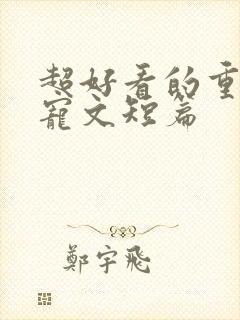 超好看的重
寵文短篇
鄭宇飛